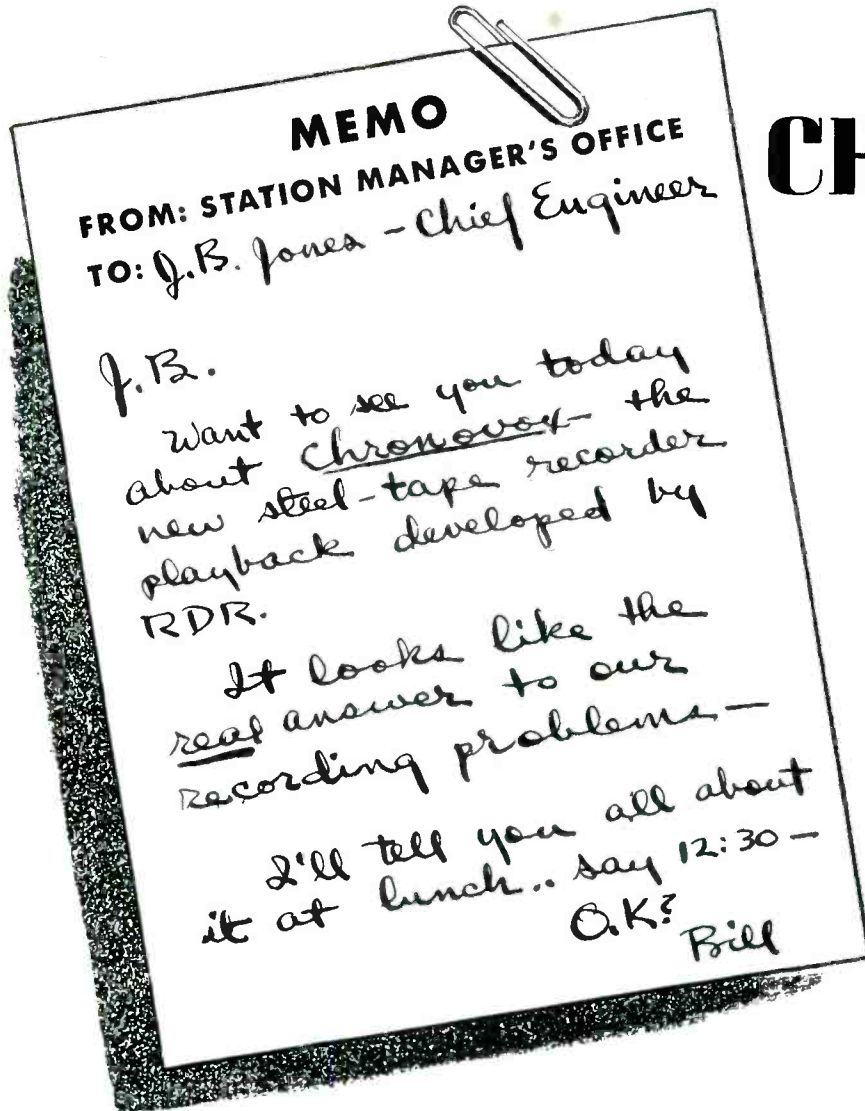 MEMO
FROM: STATION MANAGER'S OFFICE
TO: J.B. Jones - Chief Engineer
J.B.
Want to see you today
about Chronovox - the
new steel-tape recorder
playback developed by
RDR.
It looks like the
real answer to our
recording problems—
I'll tell you all about
it at lunch.. say 12:30 —
O.K?
Bill
CH